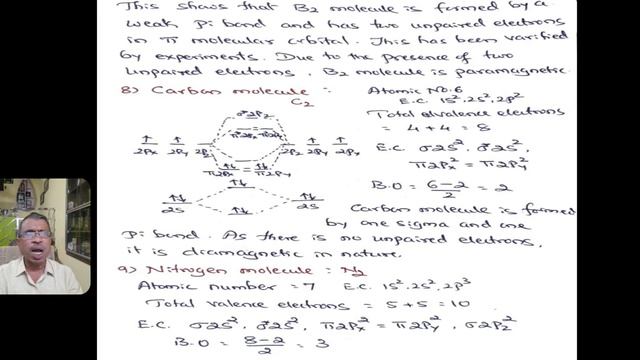 This shows that B2 molecule is formed by a
weak Pi bond and has two unpaired electrons
in π molecular orbital. This has been varified
by experiments. Due to the presence of two
unpaired electrons, B2 molecule is paramagnetic.
8) Carbon molecule : C2
Atomic No. 6
E.C. 1S², 2S², 2p²
Total elvalence electrons
= 4 + 4 = 8
E.C. σ2S², σ*2S²,
π2Px² = π2Py²
B.O = 6-2/2 = 2
σ*2Pz
π*2Px = π*2Py
2Px 2Py 2Pz
2Pz 2Py 2Px
π2Px = π2Py
2S
2S
Carbon molecule is formed
by one sigma and one
Pi bond. As there is no unpaired electrons,
it is diamagnetic in nature.
9) Nitrogen molecule : N2
Atomic number = 7 E.C. 1S², 2S², 2p³
Total valence electrons = 5 + 5 = 10
E.C. σ2S², σ*2S², π2Px² = π2Py², σ2Pz²
B.O = 8-2/2 = 3